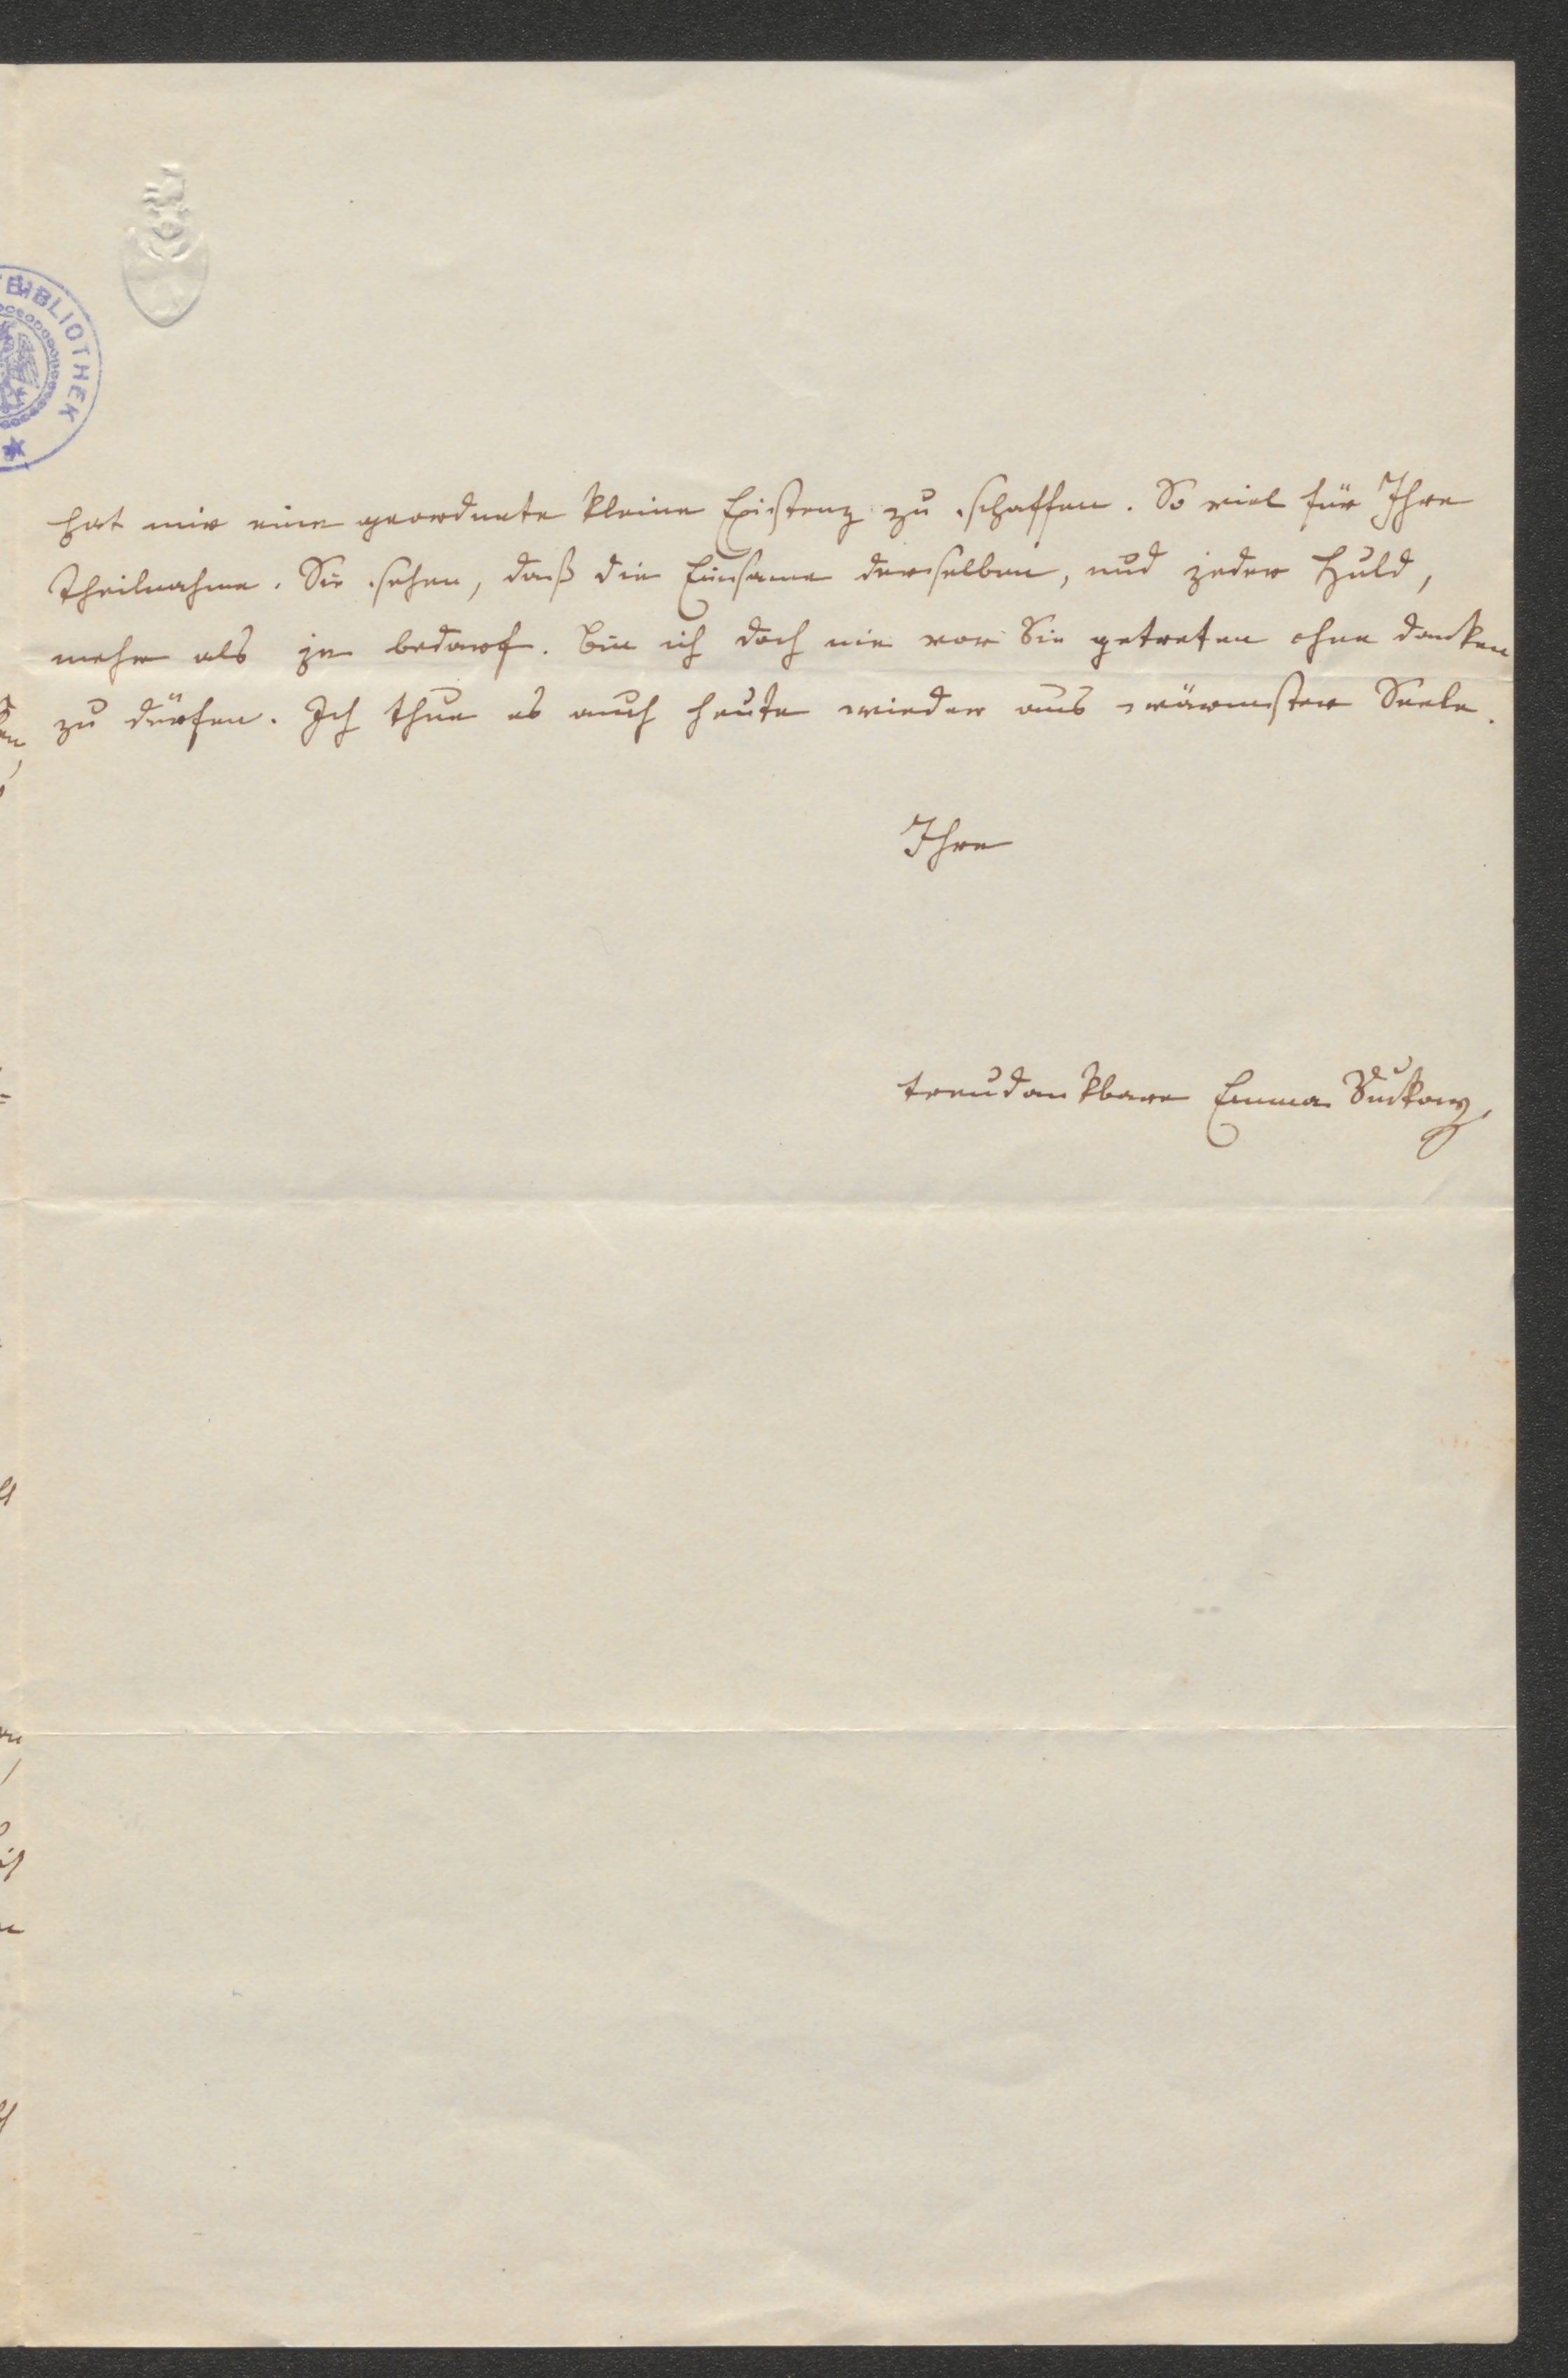 BIBLIOTHEK
hat mir eine geordnete kleine Existenz zu schaffen. So viel für Ihre
Theilnahme. Sie sehen, daß die Einsame derselben, und jeder Huld,
mehr als je bedarf. Bin ich doch nie vor Sie getreten ohne danken
zu dürfen. Ich thue es auch heute wieder aus wärmster Seele.
Ihre
treudankbare Emma Suckow,